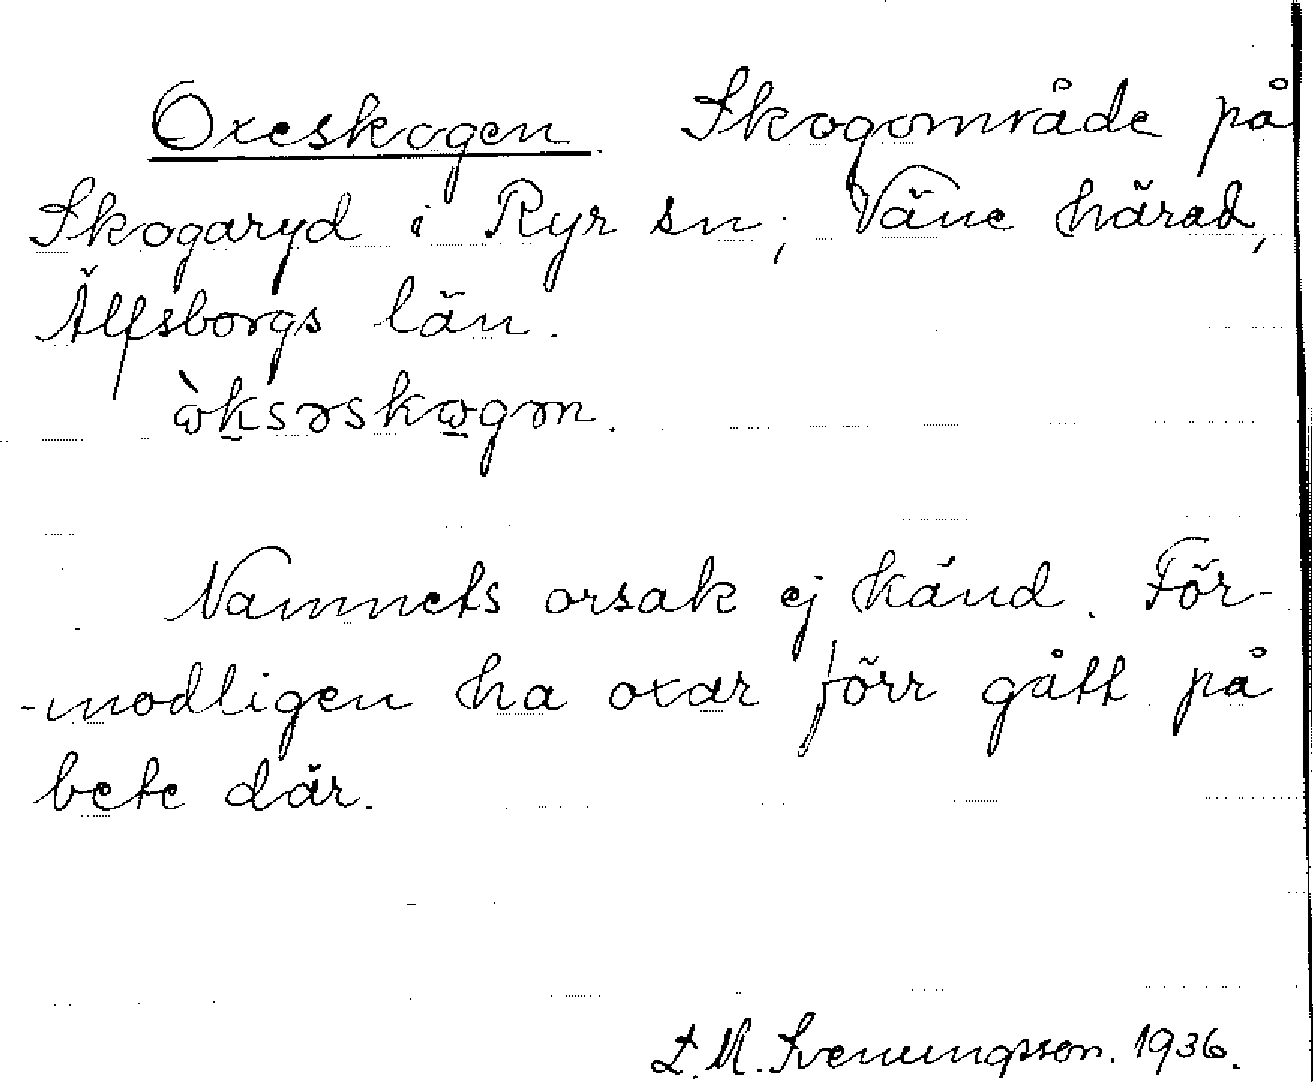 Oxeskogen. Skogområde på
Skogaryd i Ryr sn, Väne härad,
Älfsborgs län.
ò̱ksəskωgən.
Namnets orsak ej känd. För-
-modligen ha oxar förr gått på
bete där.
L. M. Svenungsson. 1936.